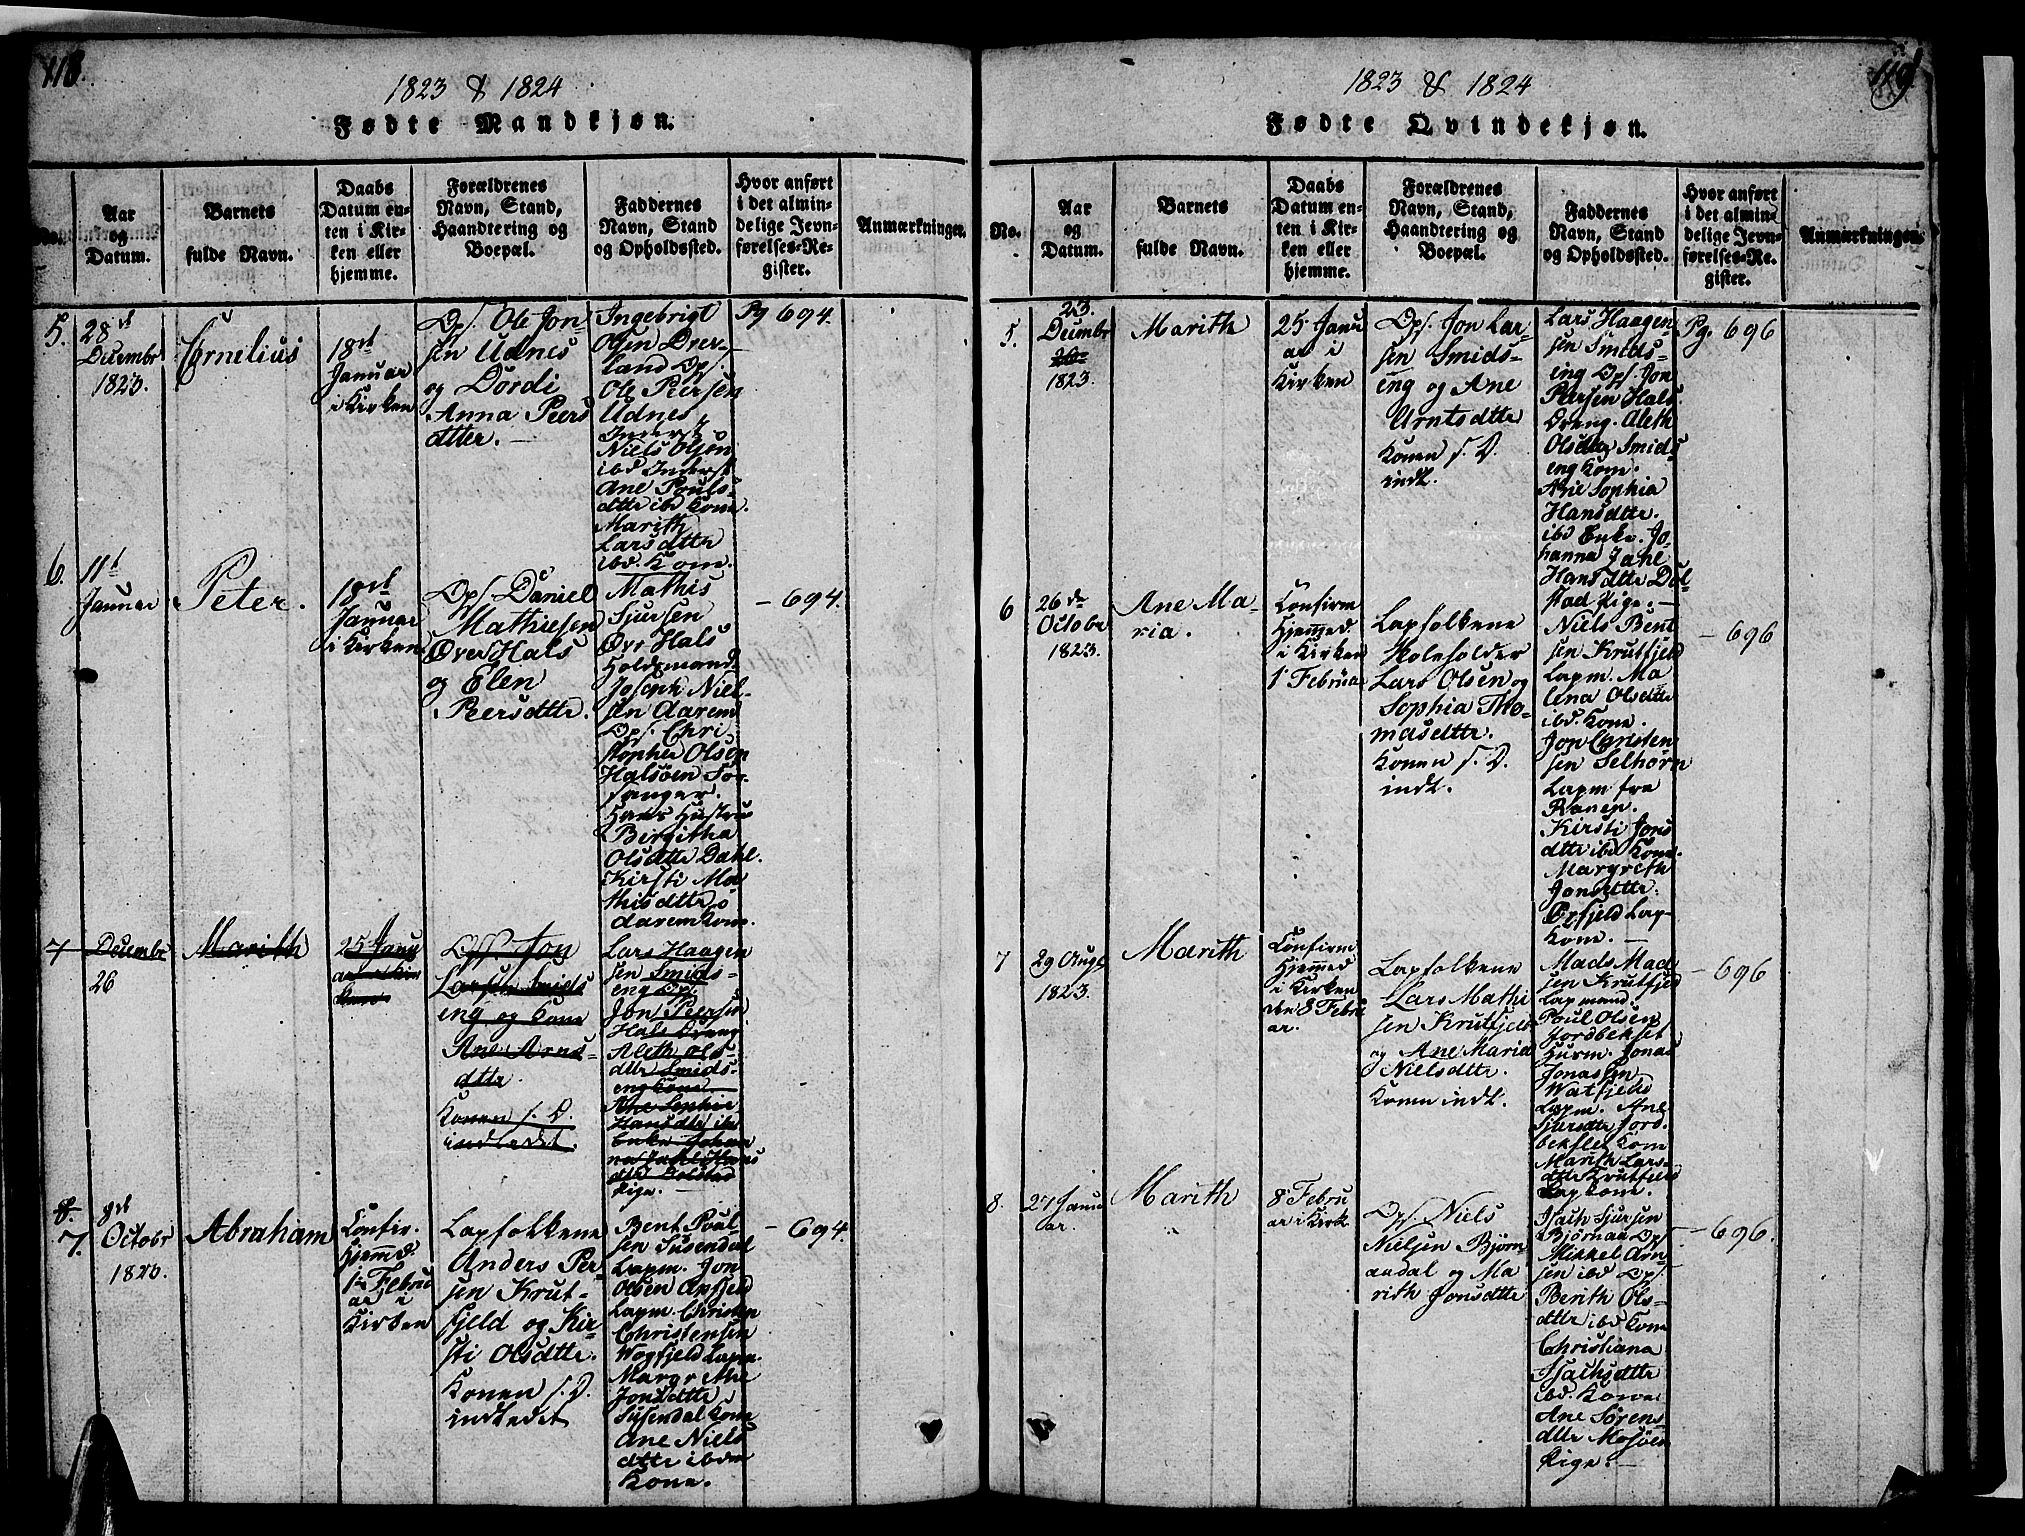 118.
1823 & 1824
Fødte Mandkjøn.
No.
Aar
og
Datum.
Barnets
fulde Navn.
Daabs
Datum en-
ten i Kir-
ken eller
hjemme.
Forældrenes
Navn, Stand,
Haandtering og
Boepæl.
Faddernes
Navn, Stand
og Opholdssted.
Hvor anført
i det almin-
delige Jevn-
førelses-Re-
gister.
Anmærkninger.
5.
28de
Decembr
1823.
Cornelius
18de
Januar
i Kirken
Ops. Ole Jon-
sen Udnes
og Dordi
Anna Peers
dtter.
Ingebrigt
Olsen Drev-
land Ops.
Ole Peersen
Udnes
Inderst
Niels Olsen
ibd Inderst
Ane Pouls-
dtte ibd Kone.
Marith
Larsdtte
ibd. Kone.
Pg 694.
6.
11te
Januar
Peter.
18de
Januar
i Kirken
Ops Daniel
Mathiesen
Øver Hals
og Elen
Peersdtte.
Mathis
Sjursen
Øvr Hals
Holdsmand.
Joseph Niel-
sen Aarem
Ops. Chri
stopher Olsen
Halsöen For-
sanger.
Hans Hustrue
Birgitha
Olsdtte Dahl.
Kirsti Ma
thisdtte
Aarem Kone.
- 694.
7
Decembr
26
Marith
25 Janu
ar i Kir
ken
Ops. Jon
Larsen Smids
eng og Kone
Ane Arns-
dtte.
Konen s. D.
indledet.
Lars Haagen
sen Smids-
eng Ops.
Jon Peersen
Hals Dreng
Aleth Ols-
dtte Smids-
eng Kone
Ane Sophia
Hansdtte ibd
Enke Johan
na Jahl Hans
dtte Dolstad
Pige.
8.
7.
8de
Octobr
1823.
Abraham
Confir.
Hjemmed.
1te Febru
ar i
Kirken
Lapfolkene
Anders Per-
sen Krut-
fjeld og Kir-
sti Olsdtte.
Konen s. D.
indledet
Bent Poul-
sen Susendal
Lapm. Jon
Olsen Ørfjeld
Lapm. Christen
Christensen
Wogfjeld Lapm.
Margrethe
Jonsdtte
Susendal Kone
Ane Niels
dtte ibdm
Kone.
- 694.
119.
1823 & 1824
Fødte Qvindekjøn.
No.
Aar
og
Datum.
Barnets
fulde Navn.
Daabs
Datum en-
ten i Kir-
ken eller
hjemme.
Forældrenes
Navn, Stand,
Haandtering og
Boepæl.
Faddernes
Navn, Stand
og Opholdssted.
Hvor anført
i det almin-
delige Jevn-
førelses-Re-
gister.
Anmærkninger.
5.
23.
Decembr
26de
1823.
Marith
25 Janu
ar i
Kirken
Ops. Jon Lar-
sen Smids-
eng og Ane
Arntsdtte
Konen s. D.
indl.
Lars Haagen
sen Smids-
eng Ops. Jon
Peersen Hals
Dreng. Aleth
Olsdtte Smids
eng Kone.
Ane Sophia
Hansdtte.
ibd Enke. Jo-
hanna Jahl
Hansdtte Dol-
stad Pige.
Pg. 696
6
26de
Octobr
1823.
Ane Ma-
ria.
Confirm
Hjemmed.
i Kirken
1 Februar
Lapfolkene
Skoleholder
Lars Olsen og
Sophia Tho-
masdtte.
Konen s. D.
indl.
Niels Bent
sen Krutfjeld
Lapm. Ma
lena Olsdtte
ibd. Kone.
Jon Christen
sen Selhorn
Lapm fra
Ranen.
Kirsti Jons
dtte ibd Kone.
Margreth
Jonsdtte.
Ørfjeld Lap-
Kone.
- 696
7
29 Augs
1823.
Marith
Confirm
Hjemmed
i Kirken
den 8 Febru
ar.
Lapfolkene
Lars Mathi
sen Krutfjeld
og Ane Maria
Nielsdtte.
Konen indl.
Mads Mad
sen Krutfjeld
Lapmand.
Poul Olsen
Jordbekset
Husm. Jonas
Jonassen
Watfjeld
Lapm. Ane
Sjursdtte Jord-
bekset Kone
Marith Lars-
dtte Krutfjeld
Lapkone.
- 696
8.
27 Janu
ar.
Marith
8 Febru
ar i Kirk
Ops. Niels
Nielsen Bjørn
aadal og Ma
rith Jonsdtte
Isach Sjursen
Bjørnaa Ops
Mikkel Arn
sen ibd Ops.
Berith Ols-
dtte ibd Kone
Christiana
Isachsdtte
ibd. Kone
Ane Sørens-
dtte Mosøen
Pige.
- 696.